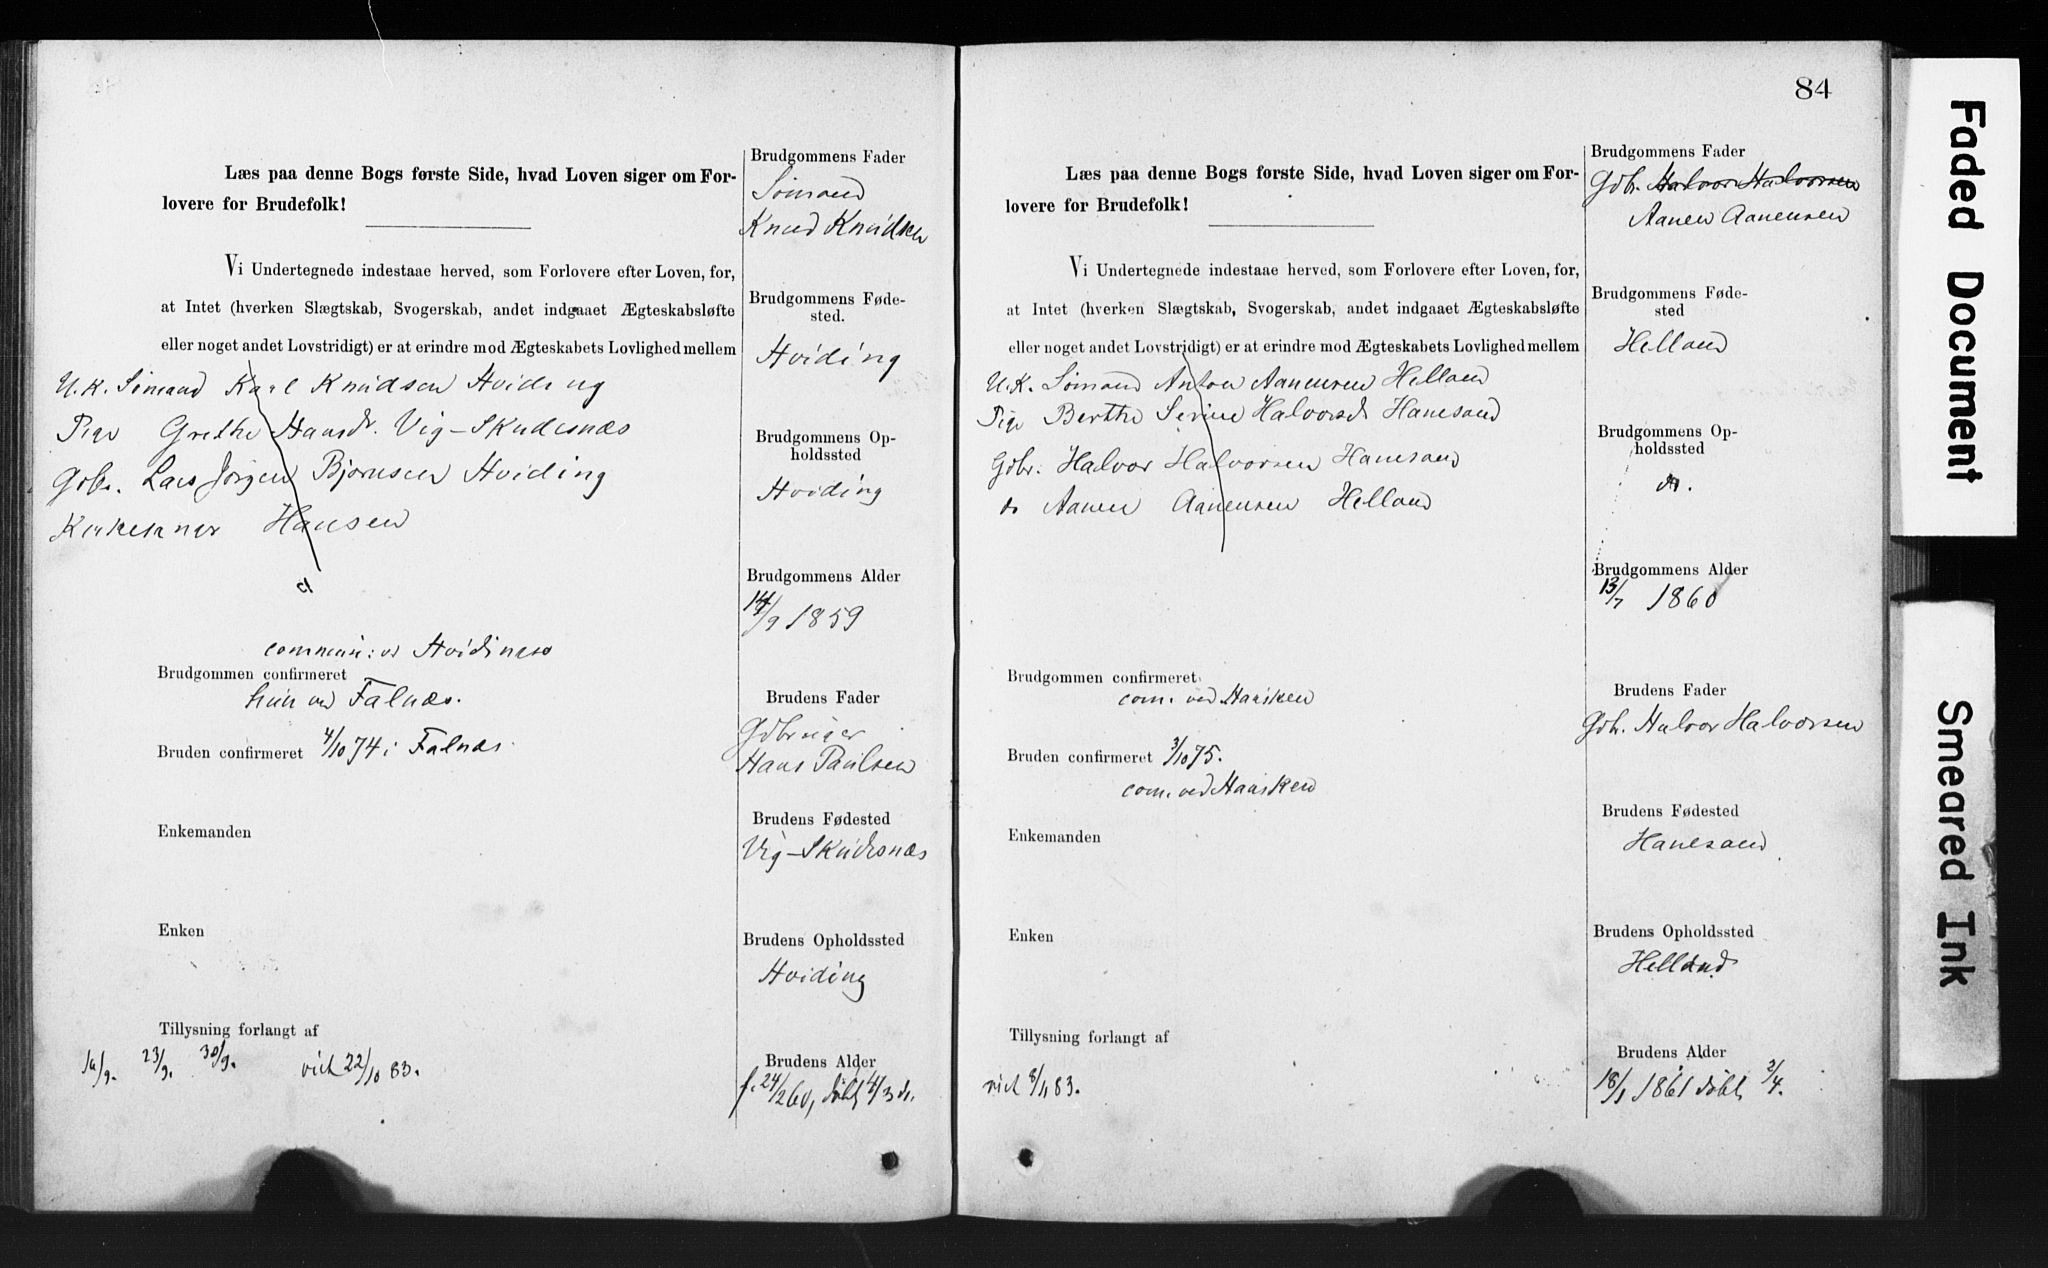 Læs paa denne Bogs første Side, hvad Loven siger om For-
lovere for Brudefolk!
Vi Undertegnede indestaae herved, som Forlovere efter Loven, for,
at Intet (hverken Slægtskab, Svogerskab, andet indgaaet Ægteskabsløfte
eller noget andet Lovstridigt) er at erindre mod Ægteskabets Lovlighed mellem
U.K. Sömand Karl Knudsen Hviding
Pige Grethe Hansd. Vig-Skudesnæs
Gdbr. Lars Jörgen Bjornsen Hviding
Kirkesanger Hansen
commun: ved Hvidingsø
Brudgommen confirmeret
hun ved Falnæs.
Bruden confirmeret 4/10 74 i Falnæs.
Enkemanden
Enken
Tillysning forlangt af
16/9. 23/9. 30/9. viet 22/10 83.
Brudgommens Fader
Sömand
Knud Knudsen
Brudgommens Føde-
sted.
Hviding
Brudgommens Op-
holdssted
Hviding
Brudgommens Alder
14/9 1859
Brudens Fader
Gdbruger
Hans Paulsen
Brudens Fødested
Vig-Skudesnæs
Brudens Opholdssted
Hviding
Brudens Alder
f. 24/2 60, döbt 4/3 ds.
84
Læs paa denne Bogs første Side, hvad Loven siger om For-
lovere for Brudefolk!
Vi Undertegnede indestaae herved, som Forlovere efter Loven, for,
at Intet (hverken Slægtskab, Svogerskab, andet indgaaet Ægteskabsløfte
eller noget andet Lovstridigt) er at erindre mod Ægteskabets Lovlighed mellem
U.K. Sömand Anton Aanensen Helland
Pige Berthe Serine Halvorsd Hanesand
Gdbr. Halvor Halvorsen Hanesand
do Aanen Aanensen Helland
Brudgommen confirmeret
com. ved Haasken
Bruden confirmeret 3/10 75.
com. ved Haasken
Enkemanden
Enken
Tillysning forlangt af
viet 8/11 83.
Brudgommens Fader
Gdbr. Halvor Halvorsen
Aanen Aanensen
Brudgommens Føde-
sted
Helland
Brudgommens Op-
holdssted
do.
Brudgommens Alder
13/7 1860
Brudens Fader
Gdb. Halvor Halvorsen
Brudens Fødested
Hanesand
Brudens Opholdssted
Helland
Brudens Alder
18/1 1861 döbt 2/4.
Faded Document
Smeared Ink